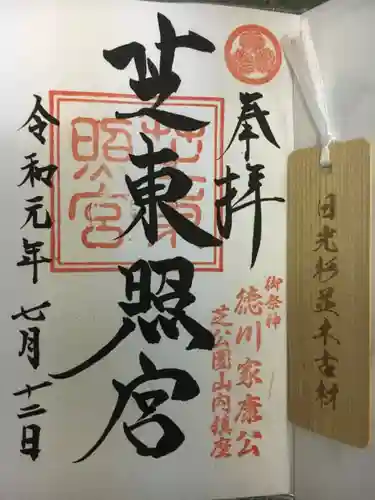 日光杉並木古材
奉拝
御祭神
徳川家康公
芝公園山内鎮座
芝東照宮
芝東照宮
令和元年七月十二日